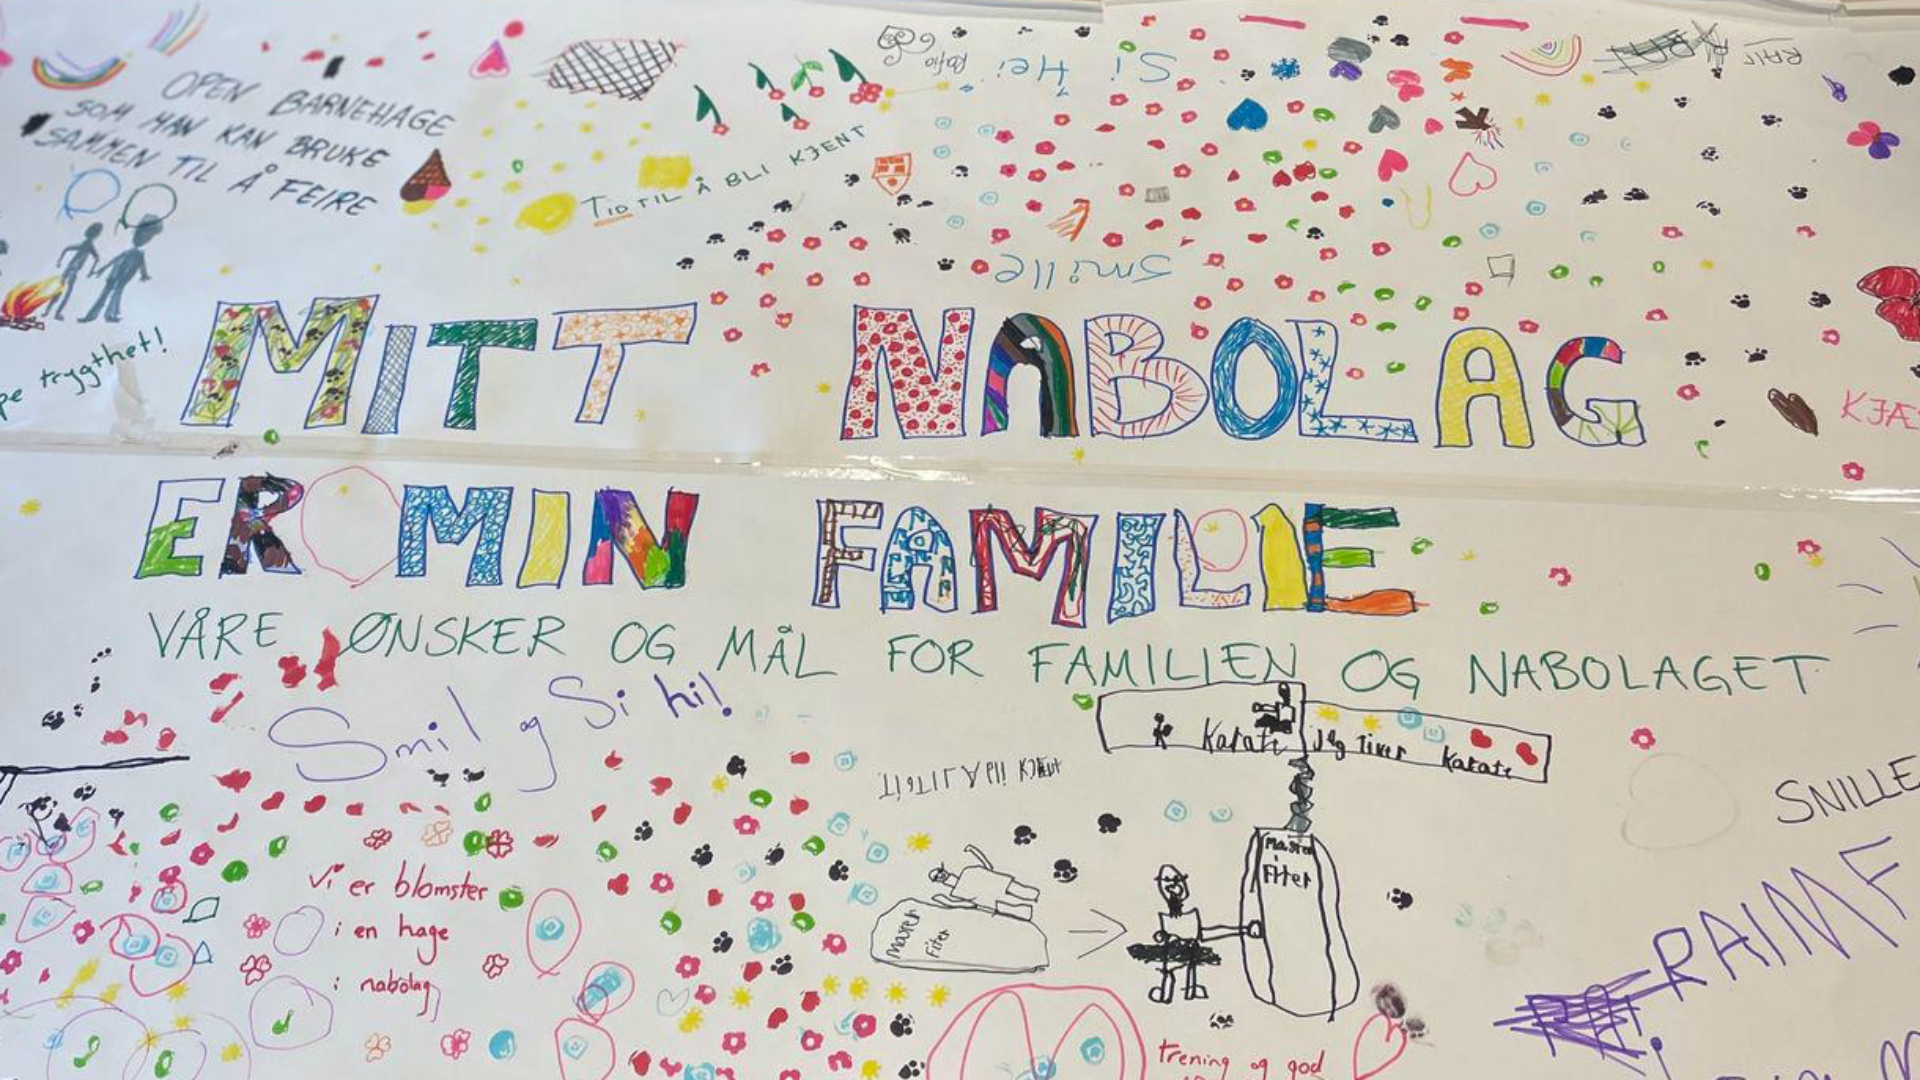 OPEN BARNEHAGE
SOM MAN KAN BRUKE
SAMMEN TIL Å FEIRE
TID TIL Å BLI KJENT
Si Hei
Smille
trygthet!
MITT NABOLAG
ER MIN FAMILIE
VÅRE ØNSKER OG MÅL FOR FAMILIEN OG NABOLAGET
Smil og Si hi!
Karate
Jeg liker Karate
SNILLE
Vi er blomster
i en hage
i nabolag
Master
Fiter
Master
Fiter
RAIMF
trening og god